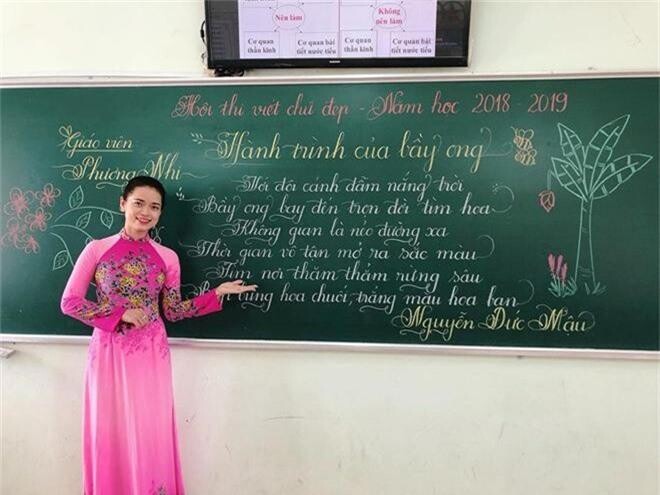 Nên làm
Không nên làm
Cơ quan thần kinh
Cơ quan bài tiết nước tiểu
Cơ quan thần kinh
Cơ quan bài tiết nước tiểu
Hội thi viết chữ đẹp - Năm học 2018 - 2019
Giáo viên
Phương Nhi
Hành trình của bầy ong
Với đôi cánh đẫm nắng trời
Bầy ong bay đến trọn đời tìm hoa
Không gian là nẻo đường xa
Thời gian vô tận mở ra sắc màu
Tìm nơi thăm thẳm rừng sâu
bừng hoa chuối, trắng màu hoa ban
Nguyễn Đức Mậu